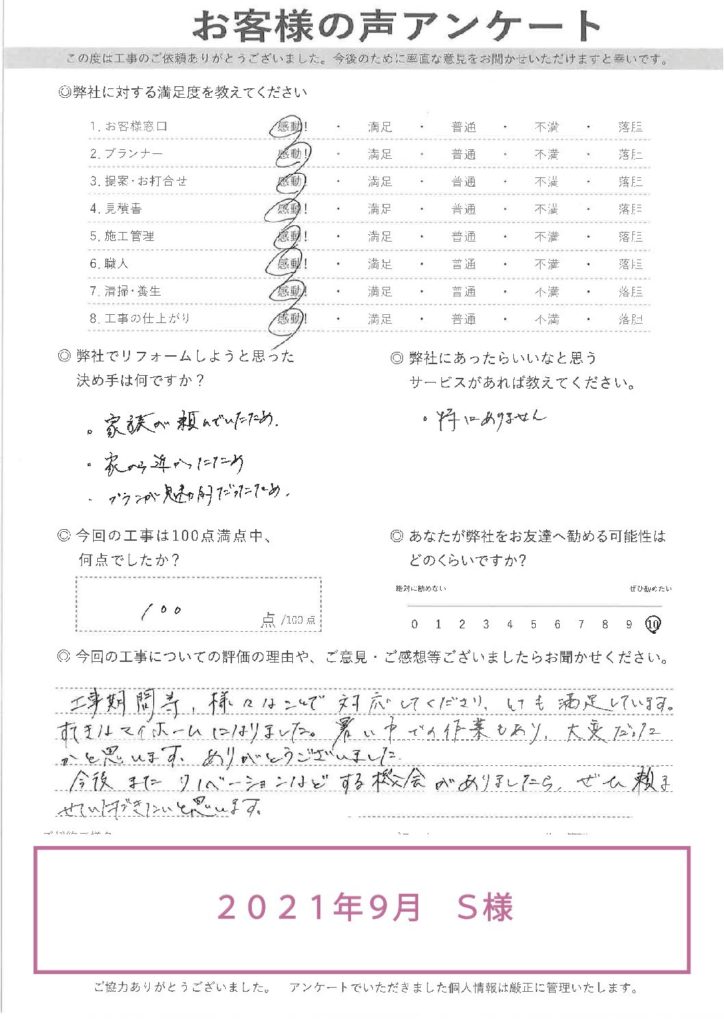 お客様の声アンケート
この度は工事のご依頼ありがとうございました。今後のために率直な意見をお聞かせいただけますと幸いです。
◎弊社に対する満足度を教えてください
1. お客様窓口 感動! ・ 満足 ・ 普通 ・ 不満 ・ 落胆
2. プランナー 感動! ・ 満足 ・ 普通 ・ 不満 ・ 落胆
3. 提案・お打合せ 感動! ・ 満足 ・ 普通 ・ 不満 ・ 落胆
4. 見積書 感動! ・ 満足 ・ 普通 ・ 不満 ・ 落胆
5. 施工管理 感動! ・ 満足 ・ 普通 ・ 不満 ・ 落胆
6. 職人 感動! ・ 満足 ・ 普通 ・ 不満 ・ 落胆
7. 清掃・養生 感動! ・ 満足 ・ 普通 ・ 不満 ・ 落胆
8. 工事の仕上がり 感動! ・ 満足 ・ 普通 ・ 不満 ・ 落胆
◎ 弊社でリフォームしようと思った
決め手は何ですか？
。家族が頼んでいたため.
・家から近かったため
・プランが魅力的だったため.
◎ 弊社にあったらいいなと思う
サービスがあれば教えてください。
・特にありません
◎ 今回の工事は100点満点中、
何点でしたか？
100 点 /100点
◎ あなたが弊社をお友達へ勧める可能性は
どのくらいですか？
絶対に勧めない ぜひ勧めたい
0 1 2 3 4 5 6 7 8 9 10
◎ 今回の工事についての評価の理由や、ご意見・ご感想等ございましたらお聞かせください。
工事期間等、様々なことで対応してくださり、とても満足しています。
すてきなマイホームになりました。暑い中での作業もあり、大変だった
かと思います。ありがとうございました
今後またリノベーションなどする機会がありましたら、ぜひ頼ま
せていただきたいと思います。
２０２１年９月　Ｓ様
ご協力ありがとうございました。　アンケートでいただきました個人情報は厳正に管理いたします。